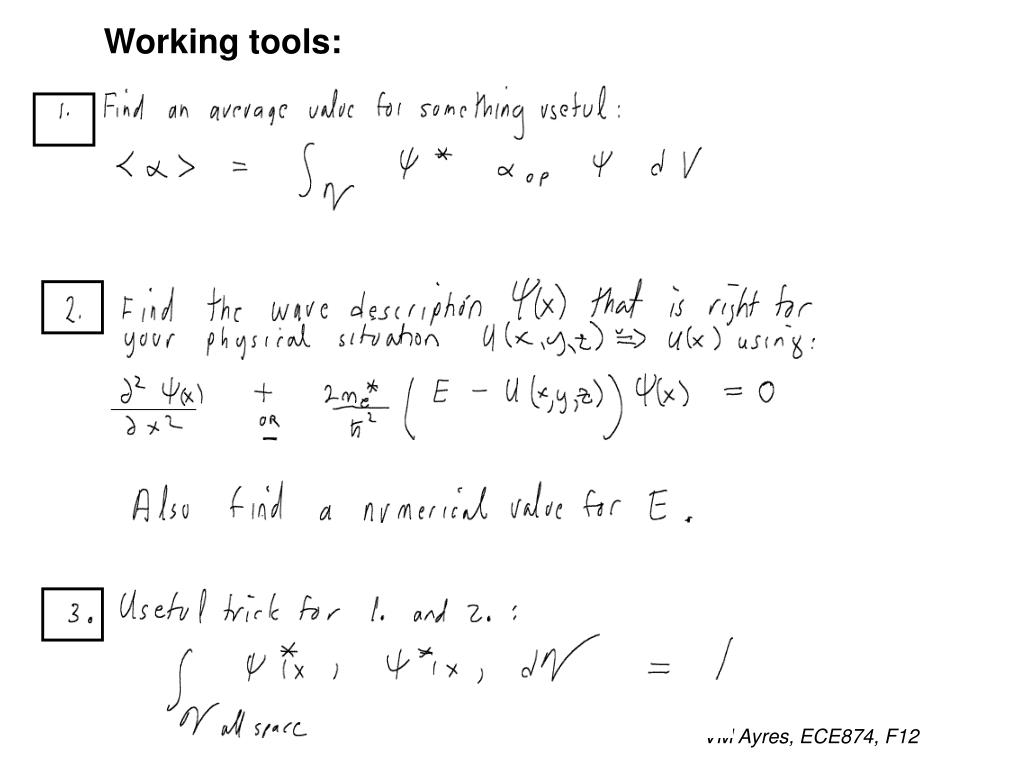 Working tools:
1. Find an average value for something useful:
<α> = ∫_V ψ* α_op ψ dV
2. Find the wave description Ψ(x) that is right for
your physical situation U(x,y,z) ⇒ U(x) using:
∂²ψ(x)/∂x² + OR 2m_e*/ħ² (E - U(x,y,z)) ψ(x) = 0
Also find a numerical value for E.
3. Useful trick for 1. and 2. :
∫_V all space ψ*(x) ψ*(x) dV = 1
Ayres, ECE874, F12